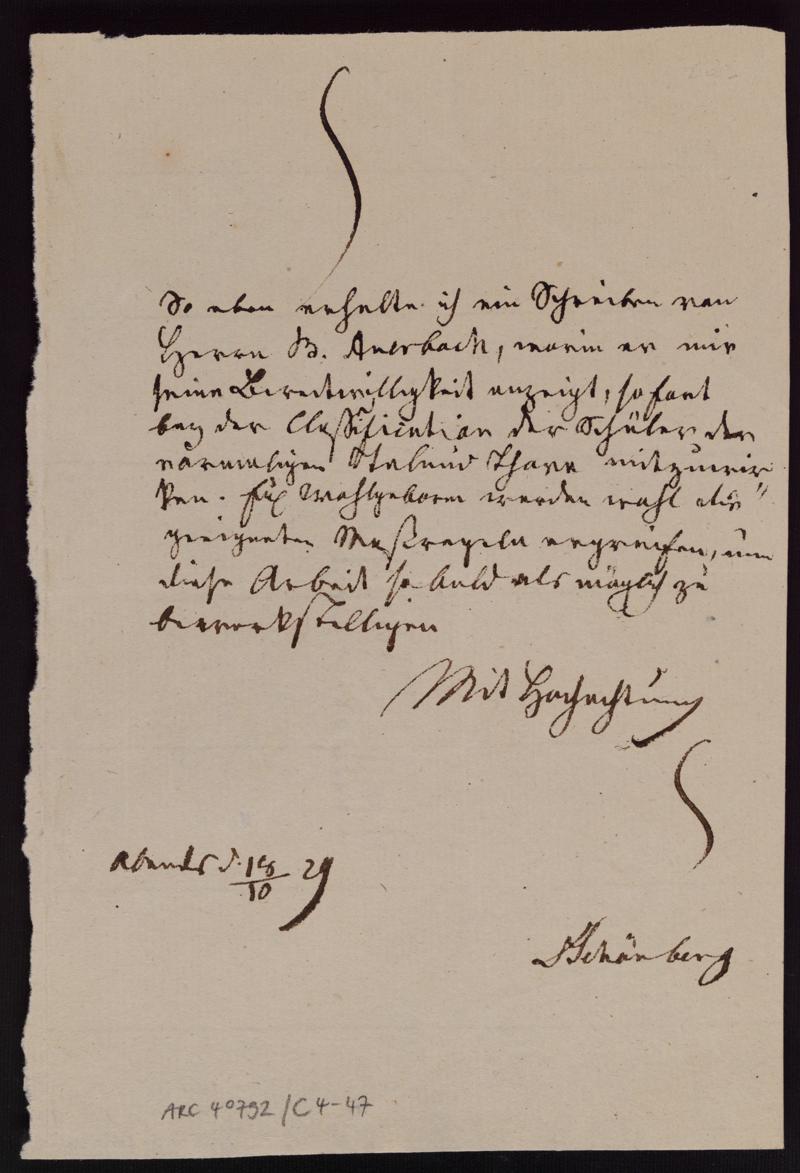 So eben erhalte ich ein Schreiben von
Herrn B. Auerbach, worin er mir
seine Bereitwilligkeit anzeigt, sofort
bey der Classification der Schüler der
vormaligen Talmud Thora mitzuwir
ken. Ew Wohlgeboren werden wohl die
geeigneten Maßregeln ergreifen, um
diese Arbeit so bald als möglich zu
bewerkstelligen
Mit Hochachtung
Abends d. 18/10 29
Schönberg
ARC 4°792/C4-47